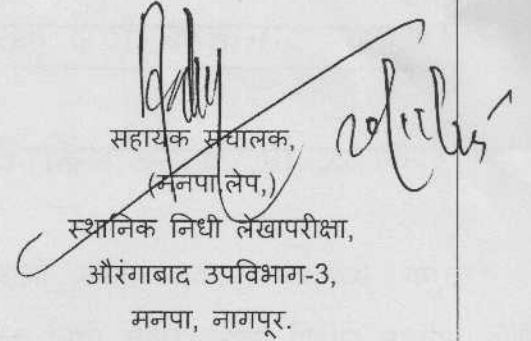 सहायक संचालक,
(मनपा लेप,)
स्थानिक निधी लेखापरीक्षा,
औरंगाबाद उपविभाग-3,
मनपा, नागपूर.